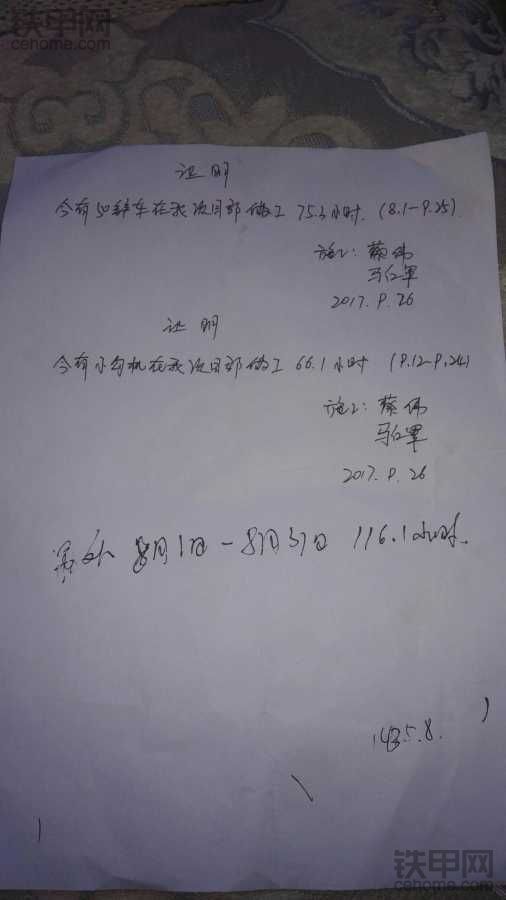 铁甲网
cehome.com
证明
今有50铲车在我项目部做工 75.3小时. (8.1-9.25).
施工: 蔡伟
马红军
2017.9.26
证明
今有小勾机在我项目部做工 66.1小时 (9.12-9.24)
施工: 蔡伟
马红军
2017.9.26
另外 8月1日-8月31日 116.1小时.
铁甲网
cehome.com